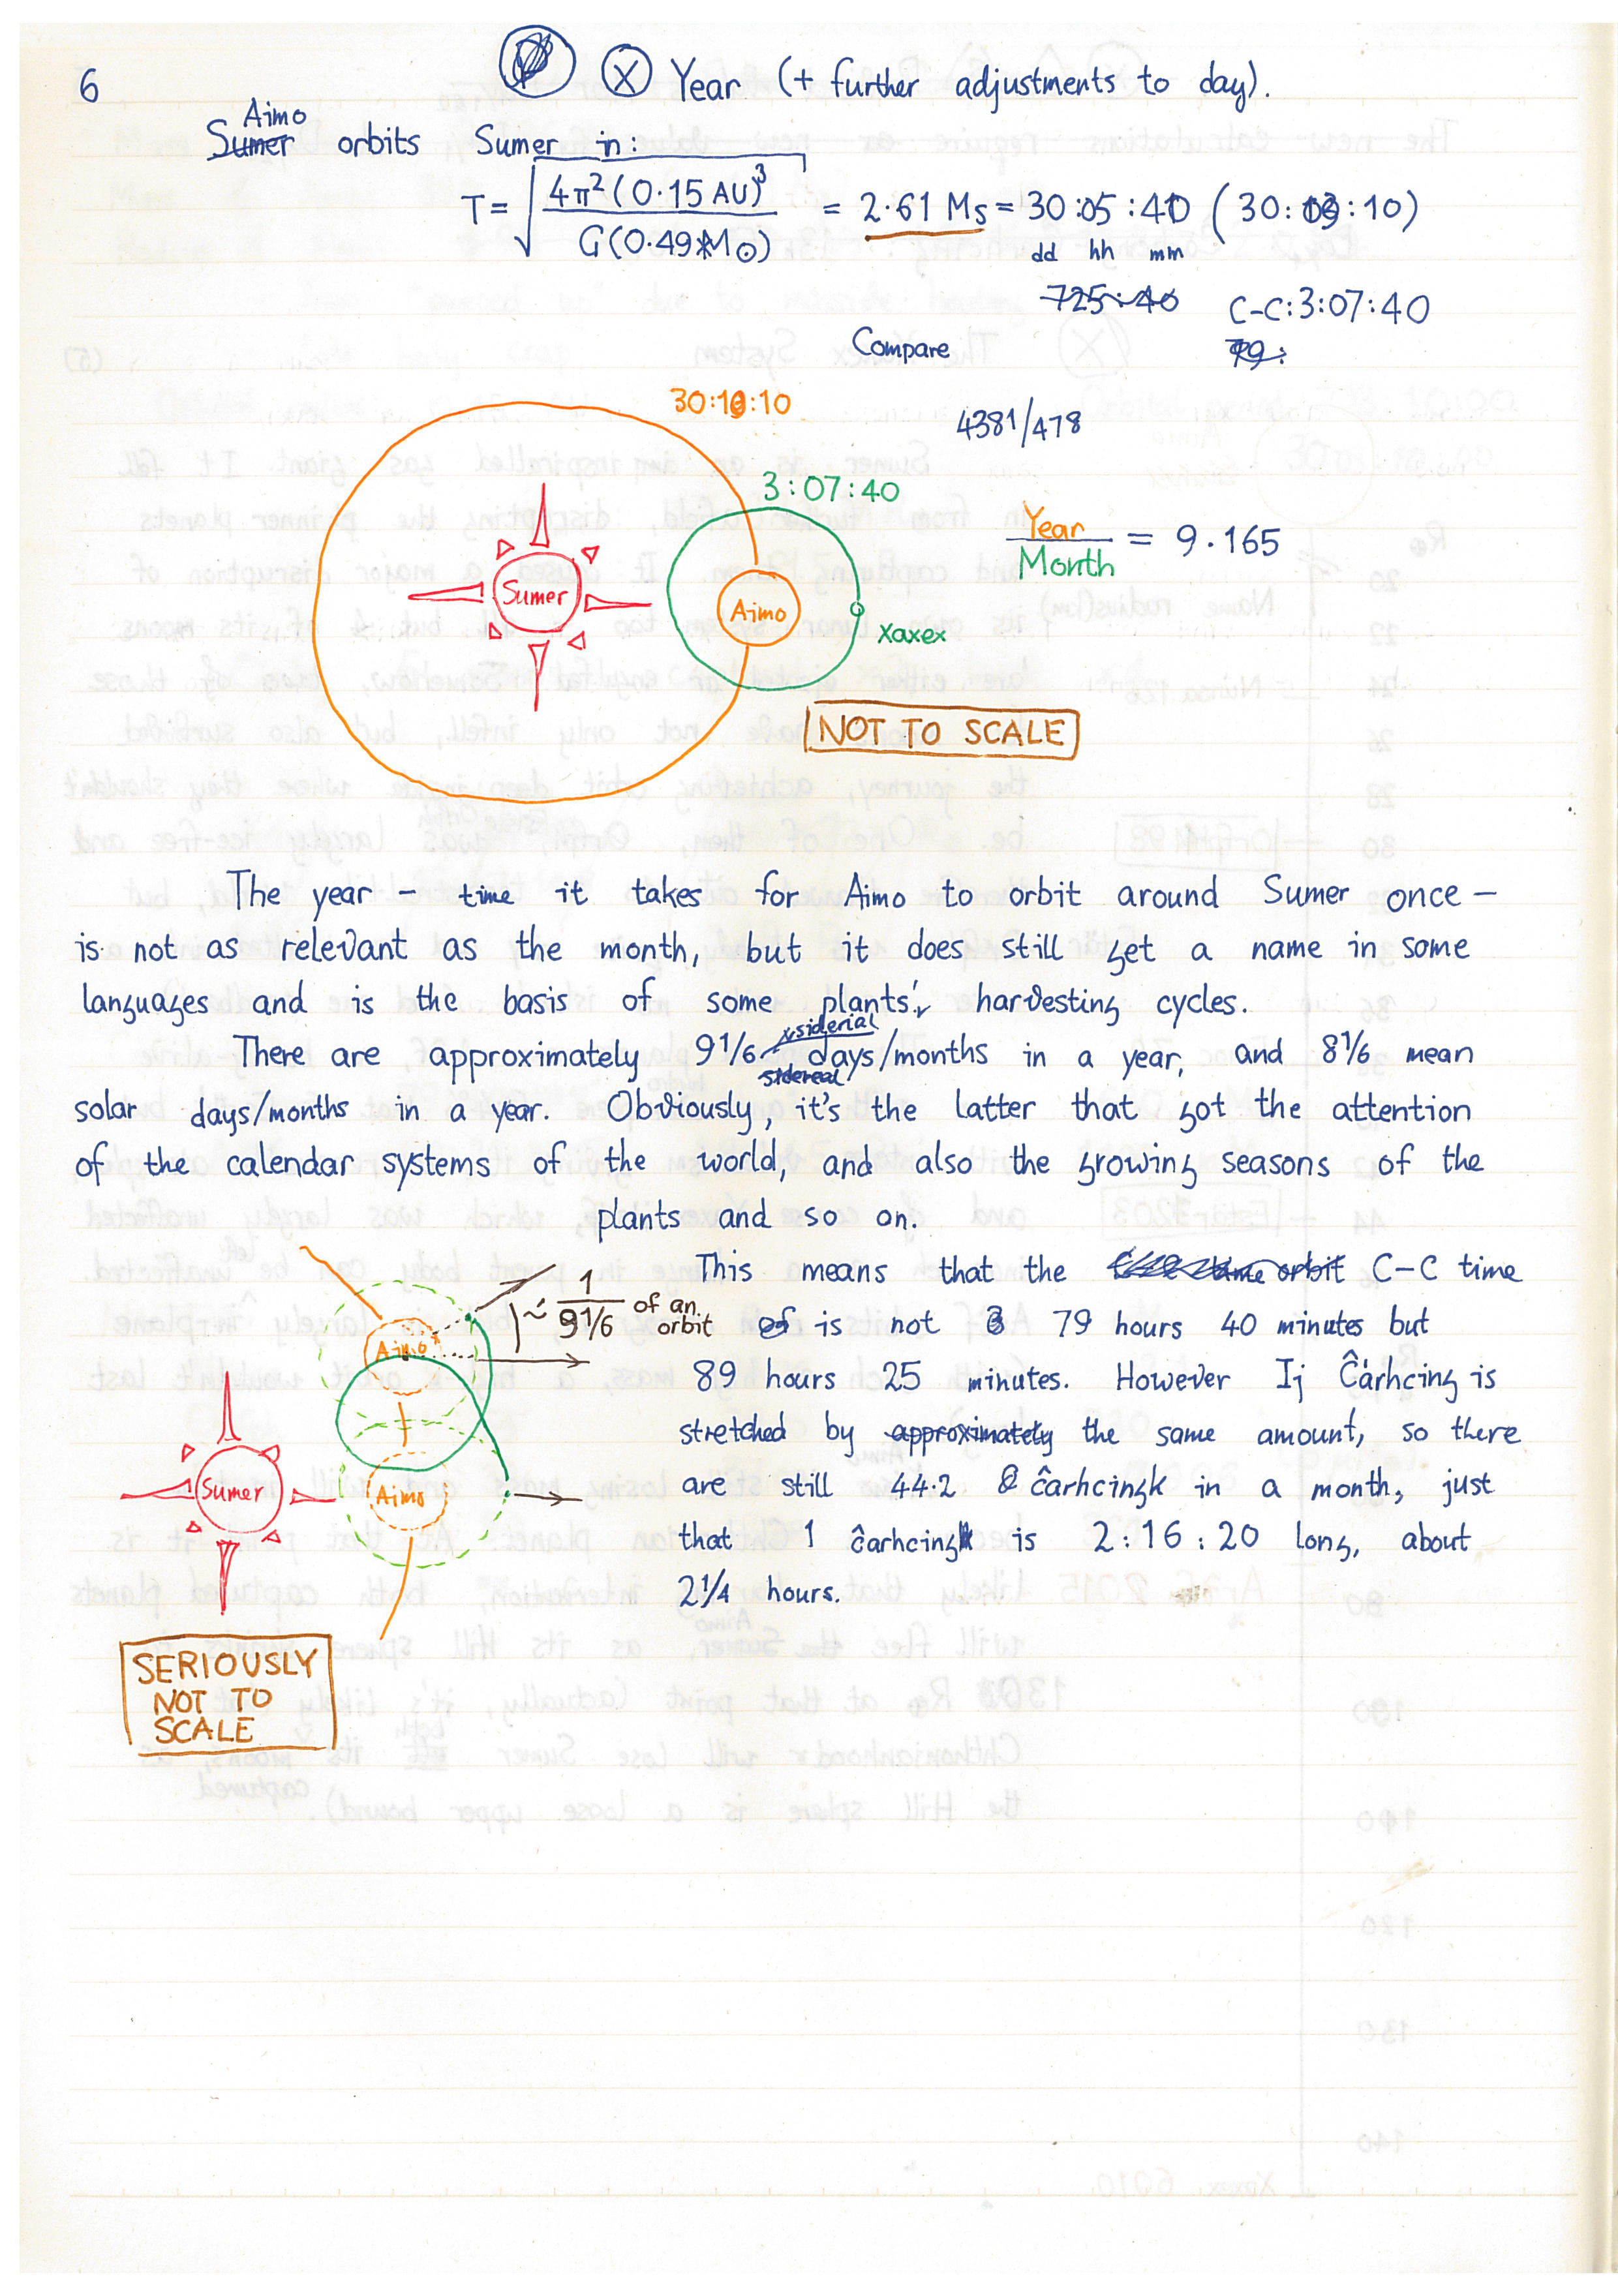 6
Ⓧ Year (+ further adjustments to day).
Aimo
Sumer orbits Sumer in:
T = √(4π²(0.15 AU)³ / G(0.49 M⊙)) = 2.61 Ms = 30:05:40 (30:10:10)
dd hh mm
725:40 C-C:3:07:40
Compare 79:
30:10:10
4381/478
3:07:40
Year/Month = 9.165
Sumer
Aimo
Xaxex
NOT TO SCALE
The year – time it takes for Aimo to orbit around Sumer once –
is not as relevant as the month, but it does still get a name in some
languages and is the basis of some plants' harvesting cycles.
siderial
There are approximately 9 1/6 days/months in a year, and 8 1/6 mean
sidereal
solar days/months in a year. Obviously, it's the latter that got the attention
of the calendar systems of the world, and also the growing seasons of the
plants and so on.
This means that the time orbit C-C time
~ 1/(9 1/6) of an orbit
of is not 3 79 hours 40 minutes but
Aimo
89 hours 25 minutes. However Ij Ĉârhcing is
stretched by approximately the same amount, so there
Sumer
Aimo
are still 44.2 ĉarhcingk in a month, just
that 1 ĉarhcing is 2:16:20 long, about
2 1/4 hours.
SERIOUSLY
NOT TO
SCALE